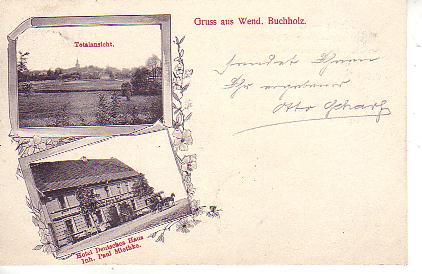 Gruss aus Wend. Buchholz.
Totalansicht.
sendet Ihnen
Ihr ergebener
Otto Scharf
Hotel Deutsches Haus
Inh. Paul Miethke.